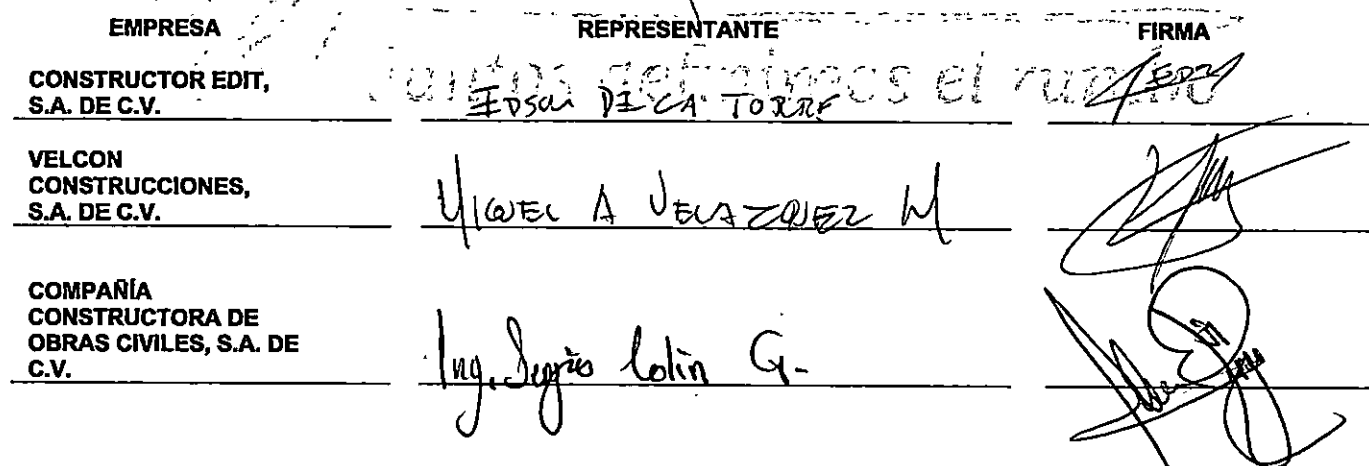 EMPRESA REPRESENTANTE FIRMA
Juntos definimos el rumbo
CONSTRUCTOR EDIT,
S.A. DE C.V. EDSON DE LA TORRE
VELCON
CONSTRUCCIONES,
S.A. DE C.V. MIGUEL A VELAZQUEZ M
COMPAÑÍA
CONSTRUCTORA DE
OBRAS CIVILES, S.A. DE
C.V. Ing. Sergio Colín G.